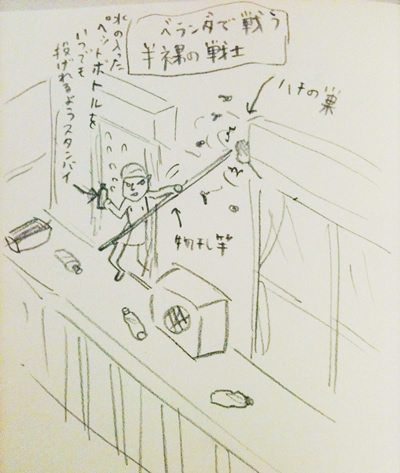 ベランダで戦う
半裸の戦士
水の入った
ペットボトルを
いつでも
投げれるようスタンバイ
ハチの巣
物干し竿